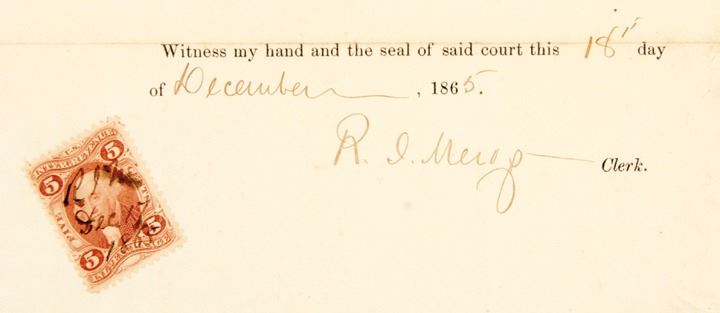 Witness my hand and the seal of said court this 18th day
of December, 1865.
R. I. Clerk.
5 5
Dec
FIVE
5 5